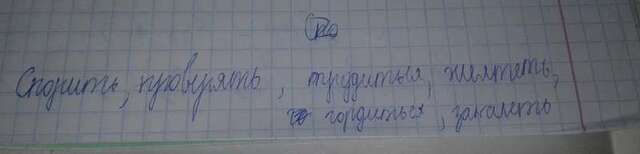 Спорить, проверять, трудиться, желтеть,
гордиться, закалять